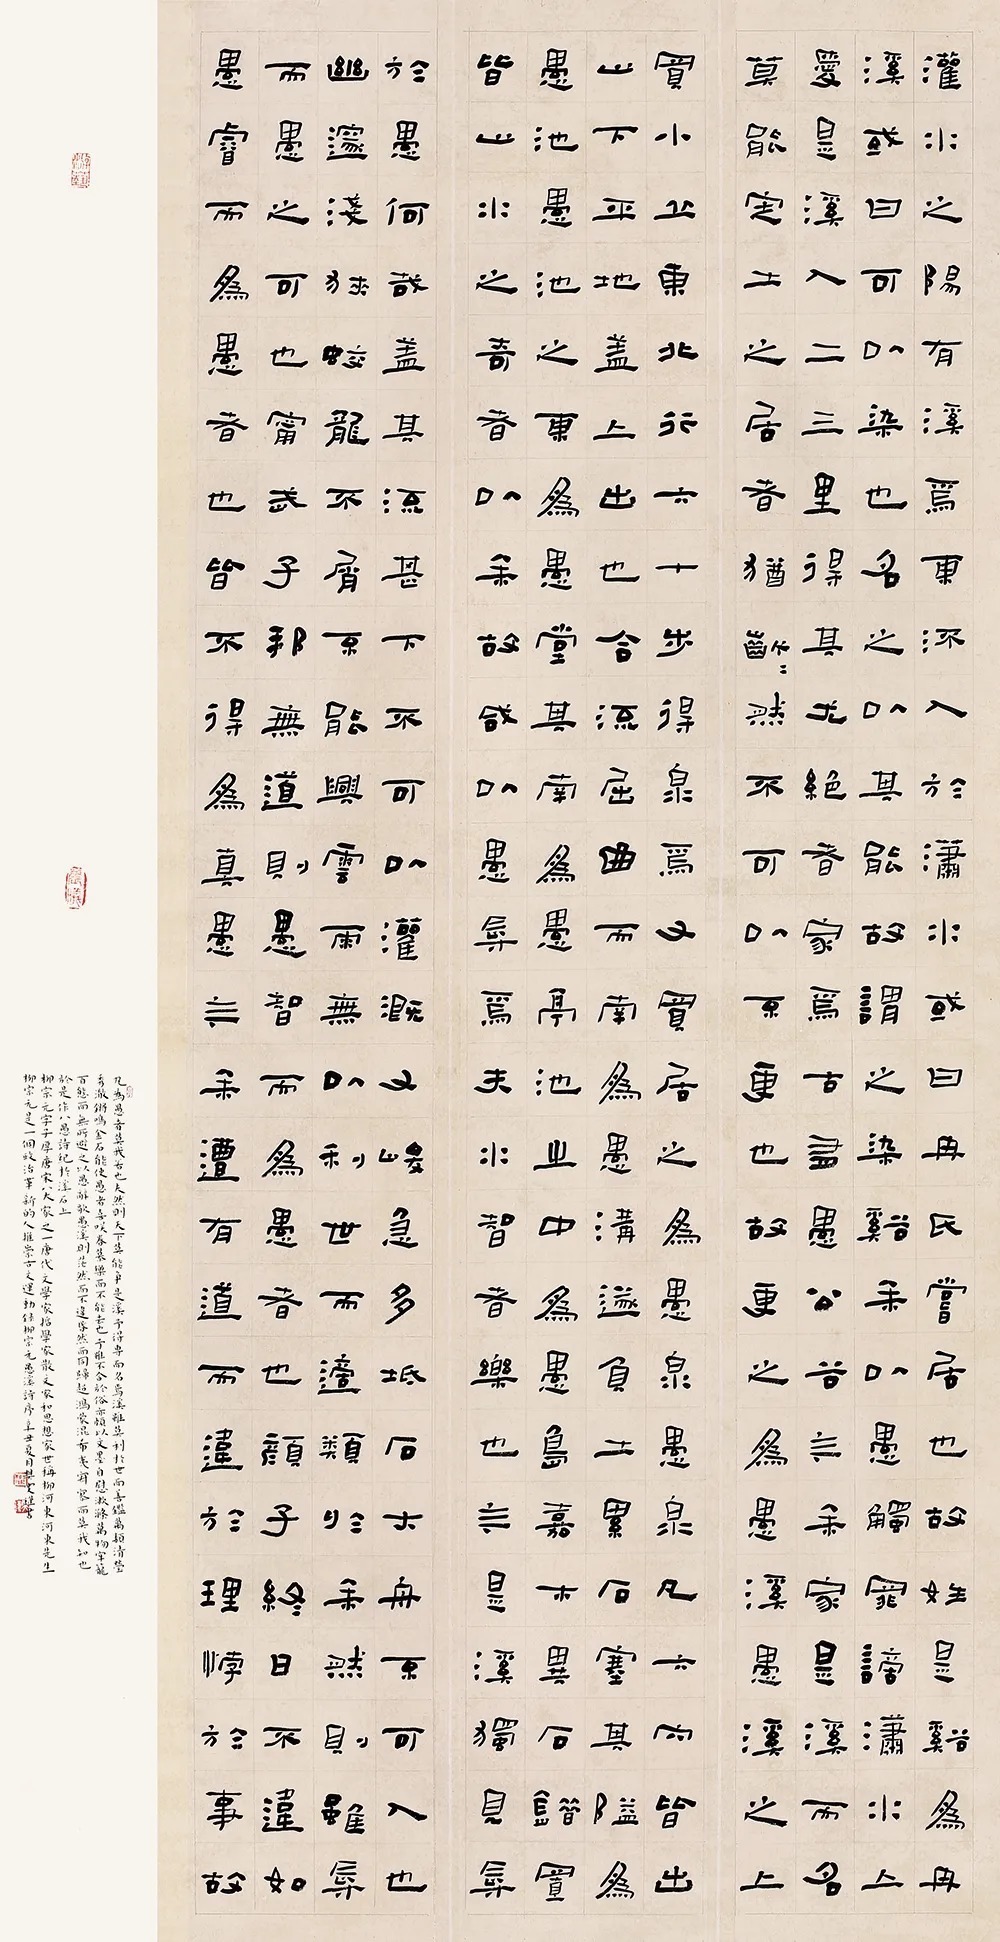 灌水之陽有溪焉東泝入於瀟水或曰冉氏嘗居也故姓是谿為冉
溪或曰可以染也名之以其能故謂之染谿余以愚觸罪謗瀟水上
愛是溪入二三里得其尤絕者家焉古有愚公谷今余家是溪而名
莫能定土之居者猶齗〻然不可以不更也故更之為愚溪愚溪之上
買小丘東北行六十步得泉焉又買居之為愚泉愚泉凡六穴皆出
山下平地蓋上出也合流屈曲而南為愚溝遂負土累石塞其隘為
愚池愚池之東為愚堂其南為愚亭池之中為愚島嘉木異石錯置
皆山水之奇者以余故咸以愚辱焉夫水智者樂也今是溪獨見辱
於愚何哉蓋其流甚下不可以灌溉又峻急多坻石大舟不可入也
幽邃淺狹蛟龍不屑不能興雲雨無以利世而適類於余然則雖辱
而愚之可也甯武子邦無道則愚智而為愚者也顏子終日不違如
愚睿而為愚者也皆不得為真愚今余遭有道而違於理悖於事故
凡為愚者莫我若也夫然則天下莫能爭是溪予得專而名焉溪雖莫利於世而善鑑萬類清瑩
秀澈鏘鳴金石能使愚者喜咲眷慕樂而不能去也予雖不合於俗亦頗以文墨自慰漱滌萬物牢籠
百態而無所避之以愚辭歌愚溪則茫然而不違昏然而同歸超鴻蒙混希夷寂寥而莫我知也
於是作八愚詩紀於溪石上
柳宗元字子厚唐宋八大家之一唐代文學家哲學家散文家和思想家世稱柳河東河東先生
柳宗元是一個政治革新的人推崇古文運動錄柳宗元愚溪詩序辛丑夏月